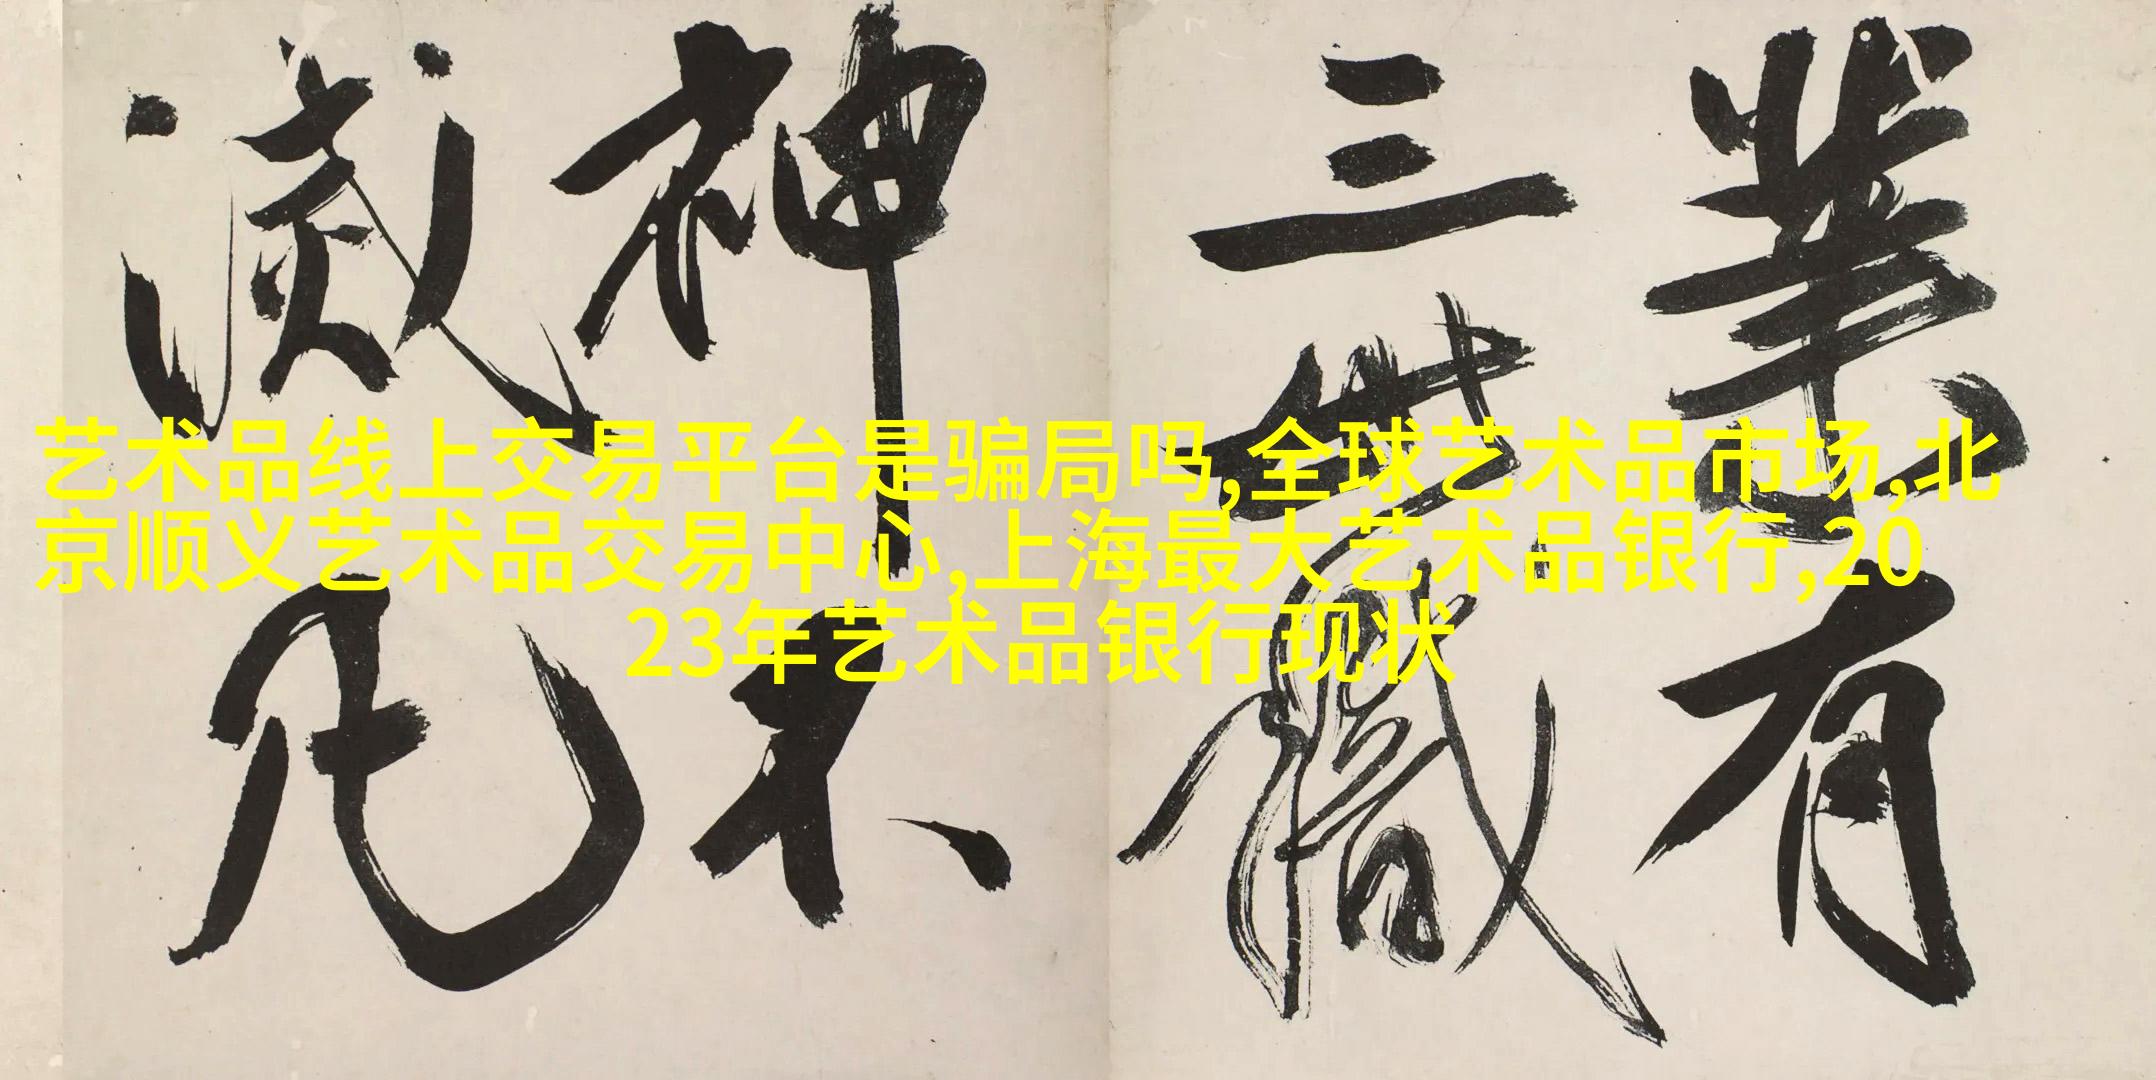 業有
三世識
神不
滅凡
艺术品线上交易平台是骗局吗,全球艺术品市场,北
京顺义艺术品交易中心,上海最大艺术品银行,20
23年艺术品银行现状